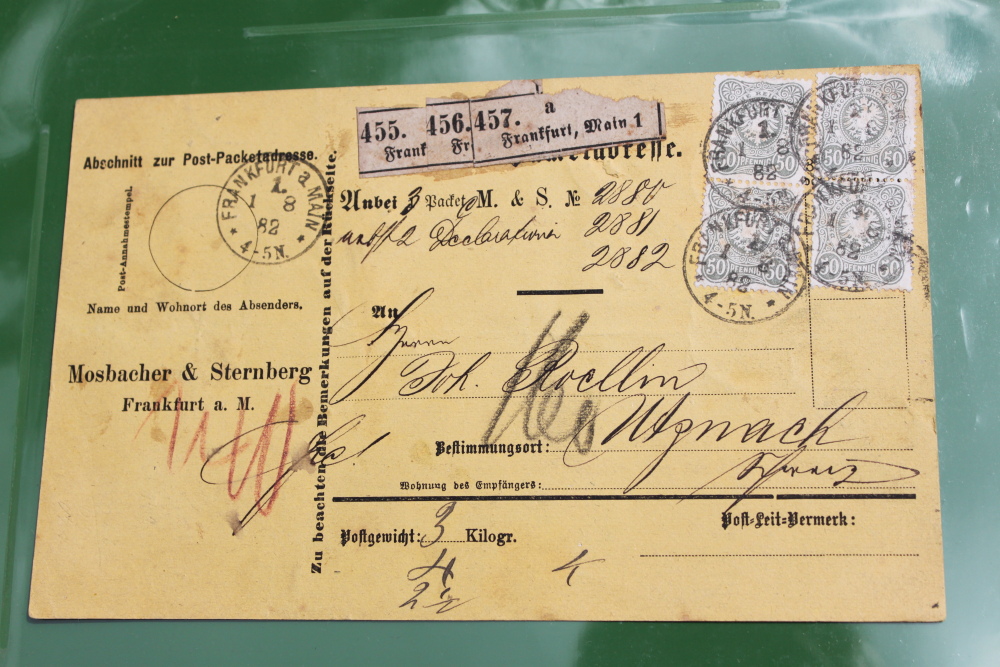 Abschnitt zur Post-Packetadresse.
FRANKFURT a MAIN
1.
1 8
82
4-5N.
Post-Annahmestempel.
Name und Wohnort des Absenders.
Mosbacher & Sternberg
Frankfurt a. M.
Zu beachten die Bemerkungen auf der Rückseite.
455. 456. 457. a
Frank Fr Frankfurt, Main 1
etadresse.
Anbei 3 Packet M. & S. № 2880
2 Declarationen 2881
2882
An
Herrn
Joh. Roellin
Bestimmungsort: Utznach
Schweiz
Wohnung des Empfängers:
Postgewicht: 3 Kilogr.
4
2½
4
Post-Leit-Vermerk:
FRANKFURT a
1.
1 8
82
50 PFENNIG 50
50 PFENNIG 50
50 PFENNIG 50
50 PFENNIG 50
FRANKFURT
1 8
82
4-5N.